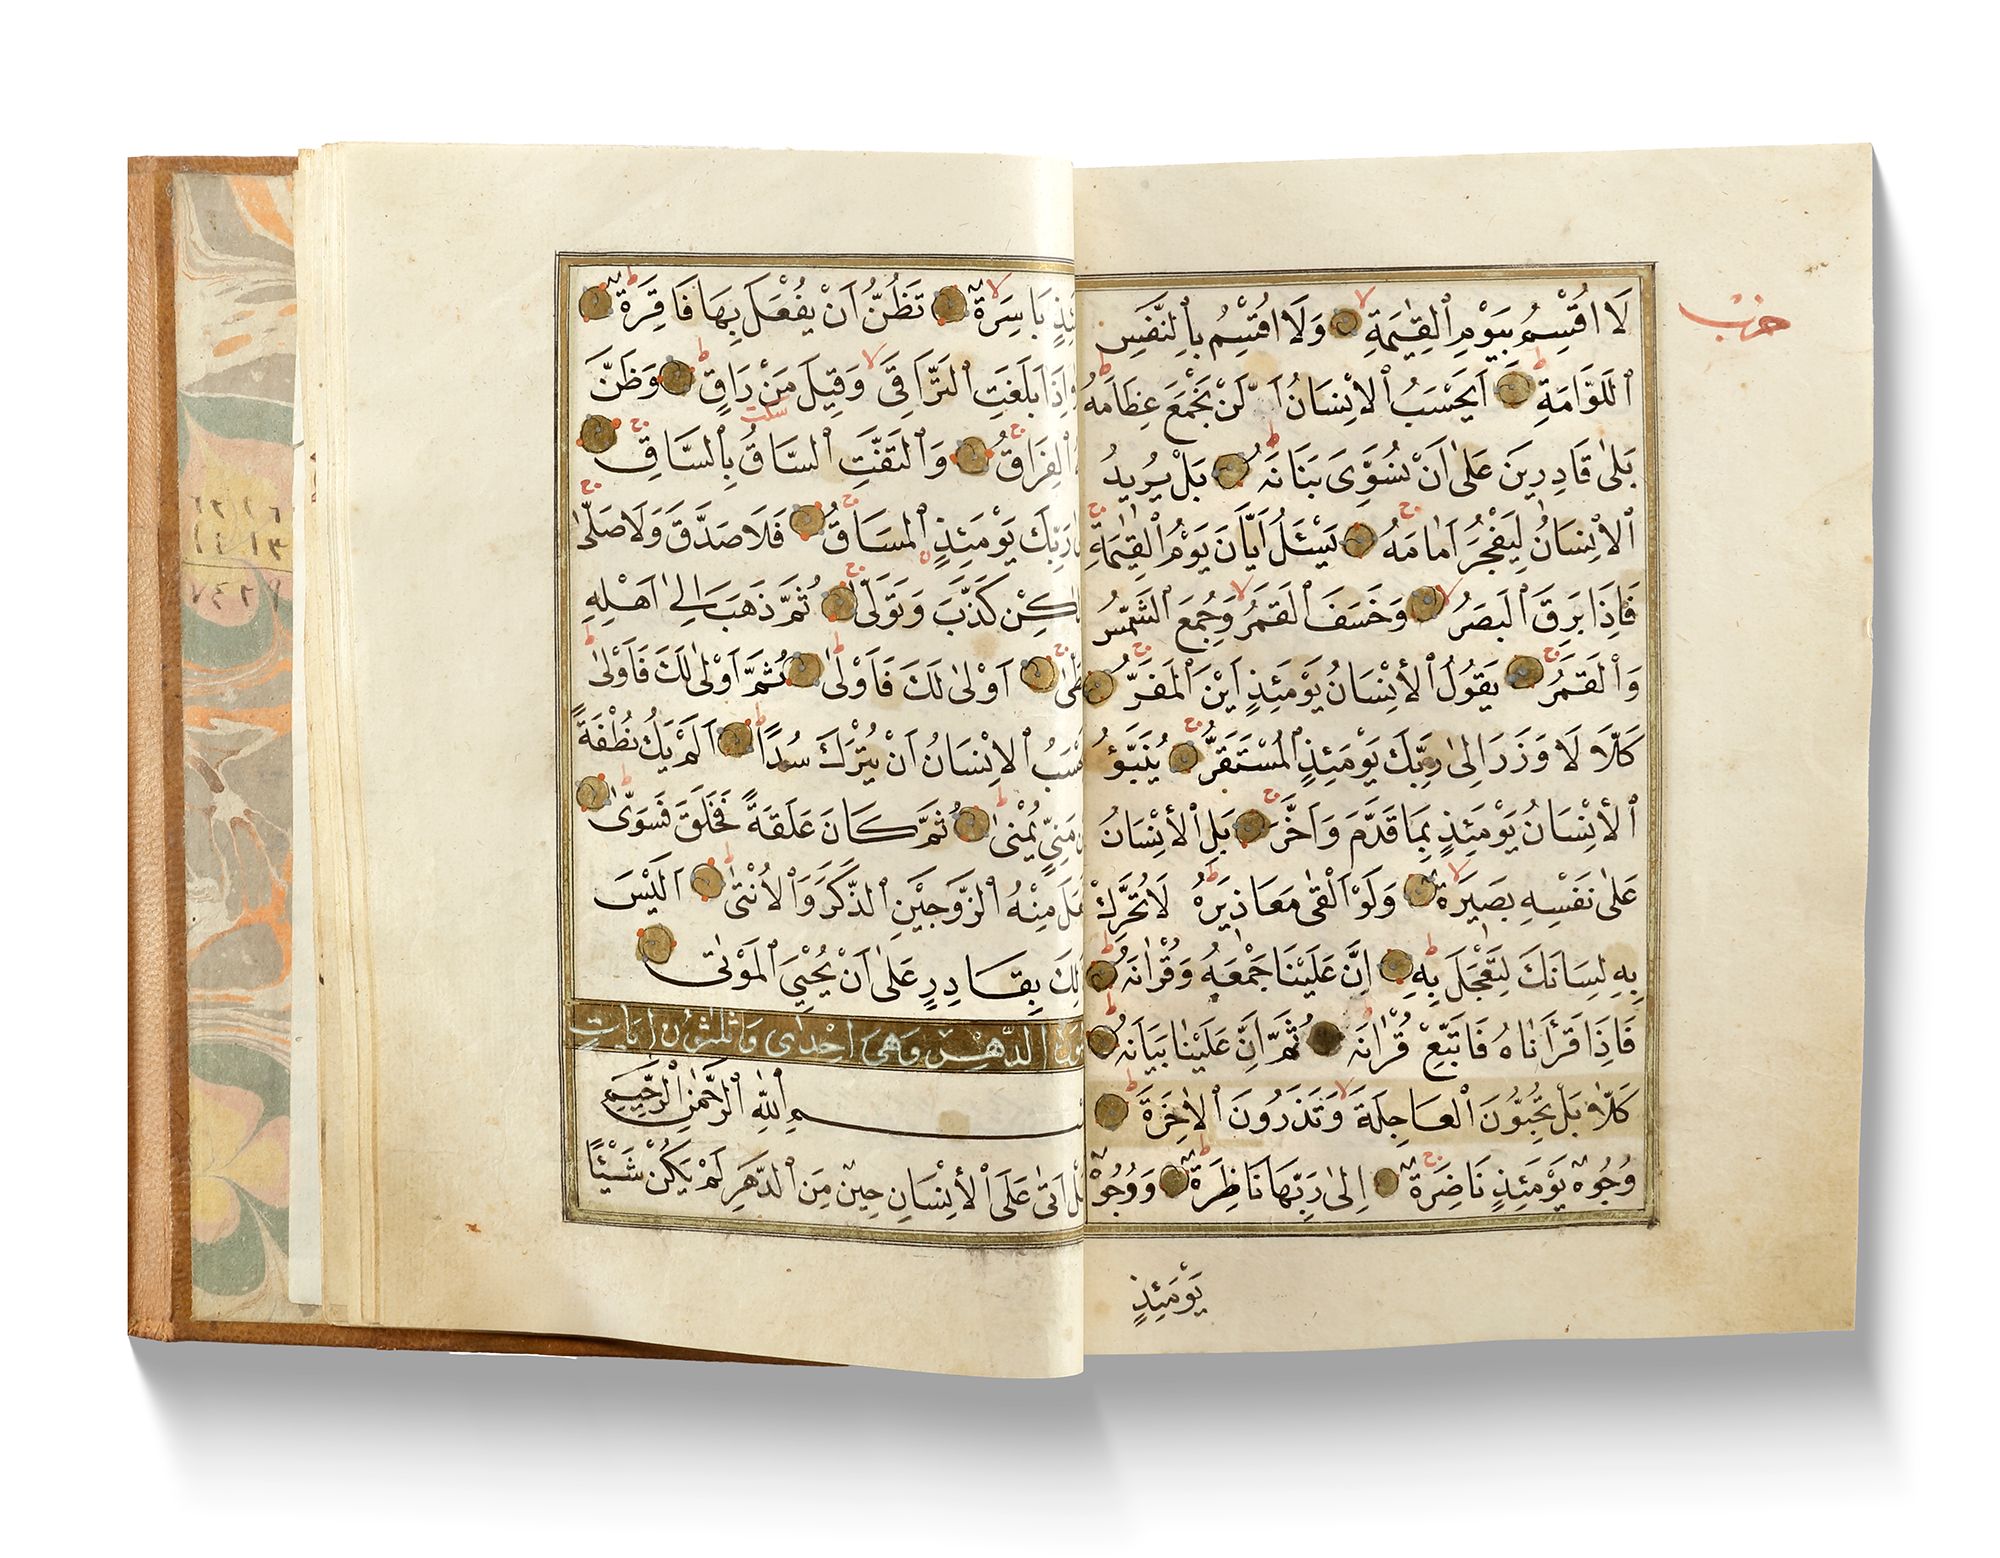 حزب
لَا اُقْسِمُ بِيَوْمِ الْقِيٰمَةِ وَلَا اُقْسِمُ بِالنَّفْسِ
اللَّوَّامَةِ اَيَحْسَبُ الْاِنْسَانُ اَلَّنْ نَجْمَعَ عِظَامَهُ
بَلٰى قَادِرِينَ عَلٰى اَنْ نُسَوِّىَ بَنَانَهُ بَلْ يُرِيدُ
الْاِنْسَانُ لِيَفْجُرَ اَمَامَهُ يَسْئَلُ اَيَّانَ يَوْمُ الْقِيٰمَةِ
فَاِذَا بَرِقَ الْبَصَرُ وَخَسَفَ الْقَمَرُ وَجُمِعَ الشَّمْسُ
وَالْقَمَرُ يَقُولُ الْاِنْسَانُ يَوْمَئِذٍ اَيْنَ الْمَفَرُّ
كَلَّا لَا وَزَرَ اِلٰى رَبِّكَ يَوْمَئِذٍ الْمُسْتَقَرُّ يُنَبَّؤُ
الْاِنْسَانُ يَوْمَئِذٍ بِمَا قَدَّمَ وَاَخَّرَ بَلِ الْاِنْسَانُ
عَلٰى نَفْسِهِ بَصِيرَةٌ وَلَوْ اَلْقٰى مَعَاذِيرَهُ لَا تُحَرِّكْ
بِهِ لِسَانَكَ لِتَعْجَلَ بِهِ اِنَّ عَلَيْنَا جَمْعَهُ وَقُرْاٰنَهُ
فَاِذَا قَرَأْنَاهُ فَاتَّبِعْ قُرْاٰنَهُ ثُمَّ اِنَّ عَلَيْنَا بَيَانَهُ
كَلَّا بَلْ تُحِبُّونَ الْعَاجِلَةَ وَتَذَرُونَ الْاٰخِرَةَ
وُجُوهٌ يَوْمَئِذٍ نَاضِرَةٌ اِلٰى رَبِّهَا نَاظِرَةٌ وَوُجُوهٌ
يَوْمَئِذٍ
بَاسِرَةٌ تَظُنُّ اَنْ يُفْعَلَ بِهَا فَاقِرَةٌ
اِذَا بَلَغَتِ التَّرَاقِىَ وَقِيلَ مَنْ رَاقٍ وَظَنَّ
سكت
الْفِرَاقُ وَالْتَفَّتِ السَّاقُ بِالسَّاقِ
رَبِّكَ يَوْمَئِذٍ الْمَسَاقُ فَلَا صَدَّقَ وَلَا صَلّٰى
كَذَّبَ وَتَوَلّٰى ثُمَّ ذَهَبَ اِلٰى اَهْلِهِ
اَوْلٰى لَكَ فَاَوْلٰى ثُمَّ اَوْلٰى لَكَ فَاَوْلٰى
الْاِنْسَانُ اَنْ يُتْرَكَ سُدًا اَلَمْ يَكُ نُطْفَةً
مَنِيٍّ يُمْنٰى ثُمَّ كَانَ عَلَقَةً فَخَلَقَ فَسَوّٰى
مِنْهُ الزَّوْجَيْنِ الذَّكَرَ وَالْاُنْثٰى اَلَيْسَ
بِقَادِرٍ عَلٰى اَنْ يُحْيِيَ الْمَوْتٰى
الدَّهْرِ وَهِىَ اِحْدٰى وَثَلٰثُونَ اٰيَاتٍ
اللّٰهِ الرَّحْمٰنِ الرَّحِيمِ
اَتٰى عَلَى الْاِنْسَانِ حِينٌ مِنَ الدَّهْرِ لَمْ يَكُنْ شَيْئًا